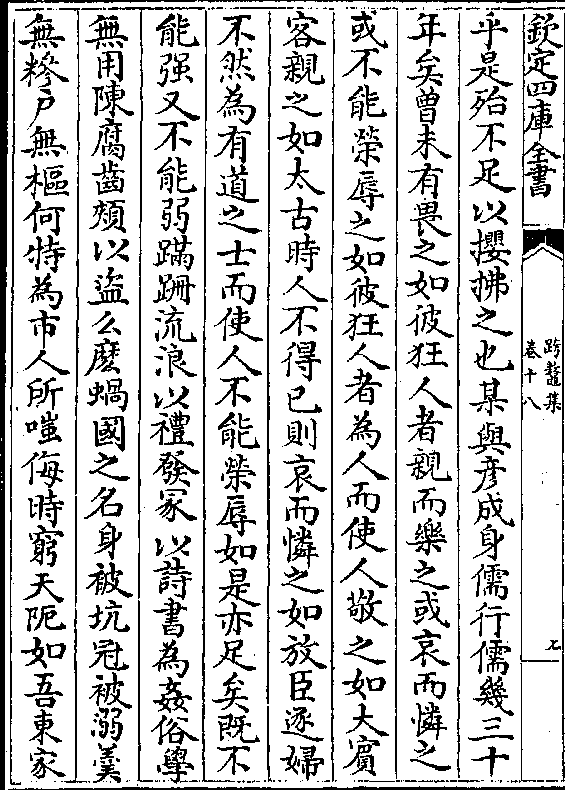 欽定四庫全書
跨鼇集
卷十八
九
乎是殆不足以攖拂之也某與彦成身儒行儒幾三十
年矣曾未有畏之如彼狂人者親而樂之或哀而憐之
或不能榮辱之如彼狂人者為人而使人敬之如大賓
客親之如太古時人不得已則哀而憐之如放臣逐婦
不然為有道之士而使人不能榮辱如是亦足矣既不
能强又不能弱蹣跚流浪以禮發冢以詩書為姦俗學
無用陳腐齒頰以盜么麽蝸國之名身被坑冠被溺羹
無糝户無樞何特為市人所嗤侮時窮天阨如吾東家